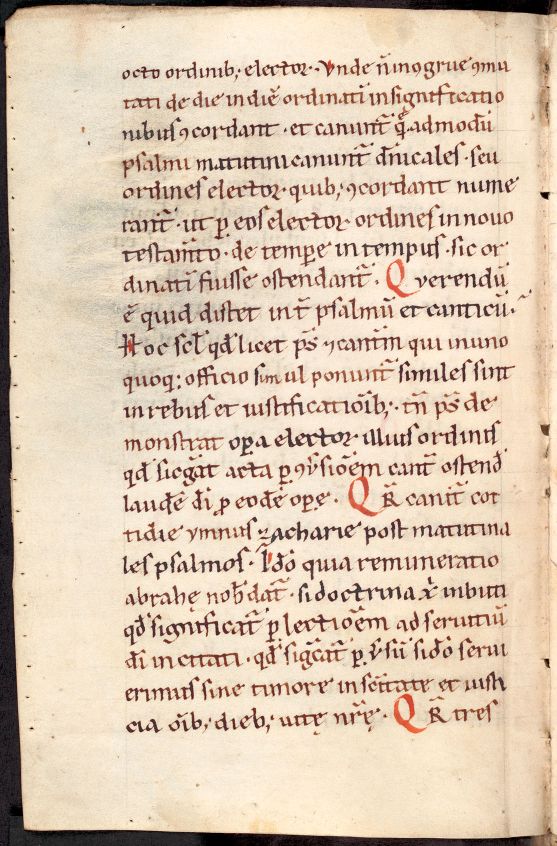 octo ordinib; elector· Vnde n̄ inꝯgrue ꝯmu
tati de die in diē ordinatī in significatio
nibus ꝯcordant · et canunt̄ q̄ admodū
psalmi matutini canunt̄ dn̄icales · seu
ordines elector· quib; ꝯcordant nume
rant̄ · ut ꝑ eos elector· ordines in nouo
testam̄to · de temꝑe in tempus · sic or
dinati fuisse ostendant̄ · Querendū
ē quid distet int̄ psalmū et canticū ·
Hoc scl̄ qd̄ licet pś ⁊ cantīm qui in uno
quoq; officio simul ponunt̄ similes sint
in rebus et iustificatiōib; · tn̄ pś de
monstrat oꝑa elector· illius ordinis
qd̄ sic ḡat acta ꝑ ꝯv̓siōem cant̄ ostend̄
laudē dī ꝓ eodē oꝑe · QR̄ canit̄ cot
tidie ymnus zacharie post matutina
les psalmos · Id̓o quia remuneratio
abrahę nob̄ dat̄ · si doctrina xp̄i inbuti
qd̄ significat̄ ꝑ lectiōem ad seruitiū
dī incitati · qd̄ sigc̄at̄ ꝑ v̓sū sid̓o serui
erimus sine timore in sc̄itate et iusti
cia oīb; dieb; uitę nr̄ę · QR̄ tres